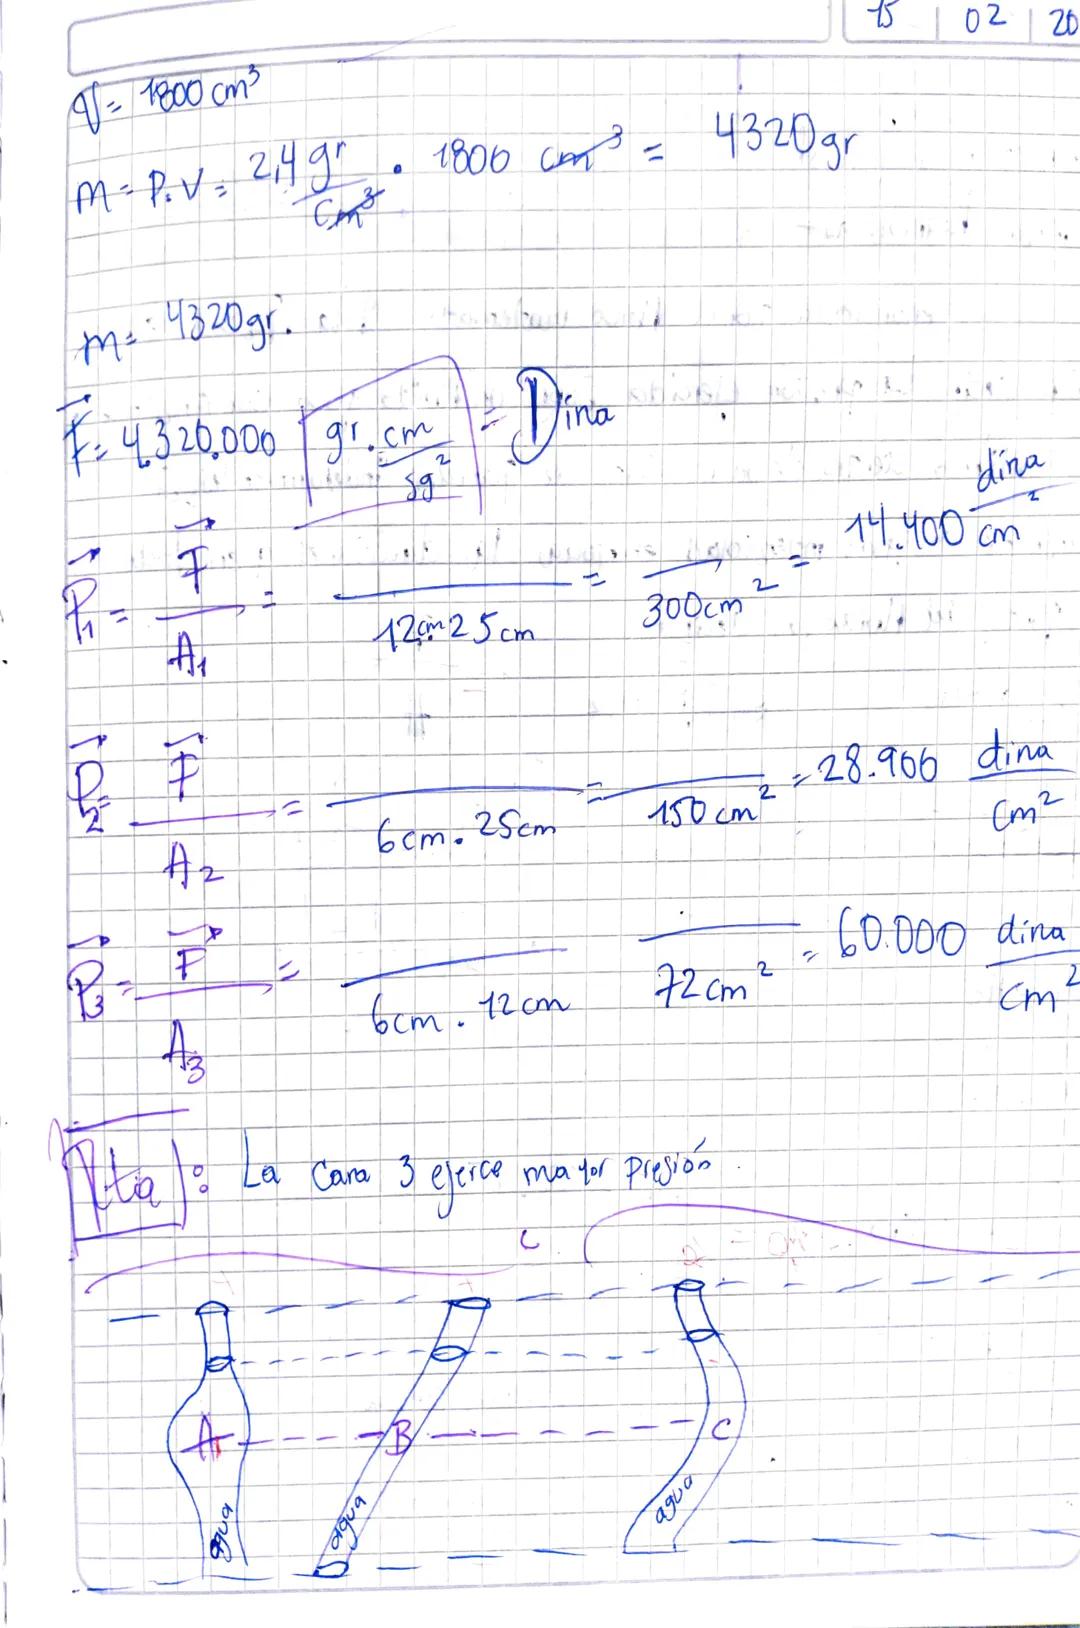 15 | 02 | 20
V = 1800 cm³
m = P.V = 2,4 gr/cm³ . 1800 cm³ = 4320 gr
m = 4320 gr.
F = 4.320.000 gr.cm/sg² = Dina
P₁ = F/A₁ = /12cm.25cm = /300cm² = 14.400 dina/cm²
P₂ = F/A₂ = /6cm.25cm = /150cm² = 28.900 dina/cm²
P₃ = F/A₃ = /6cm.12cm /72cm² = 60.000 dina/cm²
Rta: La Cara 3 ejerce mayor presión.
C
A B C
agua agua agua